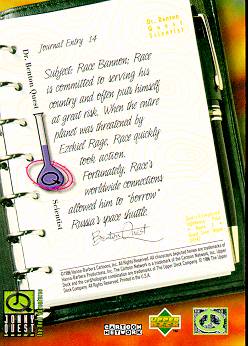 Dr. Benton
Quest
Scientist
Journal Entry 14
Dr. Benton Quest
Scientist
Subject: Race Bannon; Race
is committed to serving his
country and often puts himself
at great risk. When the entire
planet was threatened by
Ezekiel Rage, Race quickly
took action.
Fortunately, Race's
worldwide connections
allowed him to "borrow"
Russia's space shuttle.
Benton Quest
©1996 Hanna-Barbera Cartoons, Inc. All Rights Reserved. All characters depicted hereon are trademarks of
Hanna-Barbera Productions, Inc. The Cartoon Network is a trademark of the Cartoon Network, Inc. Upper
Deck and the card/hologram combination are trademarks of The Upper Deck Company. © 1996 The Upper
Deck Company. All Rights Reserved. Printed in the U.S.A.
JONNY
QUEST
CARTOON
NETWORK
UPPER
DECK